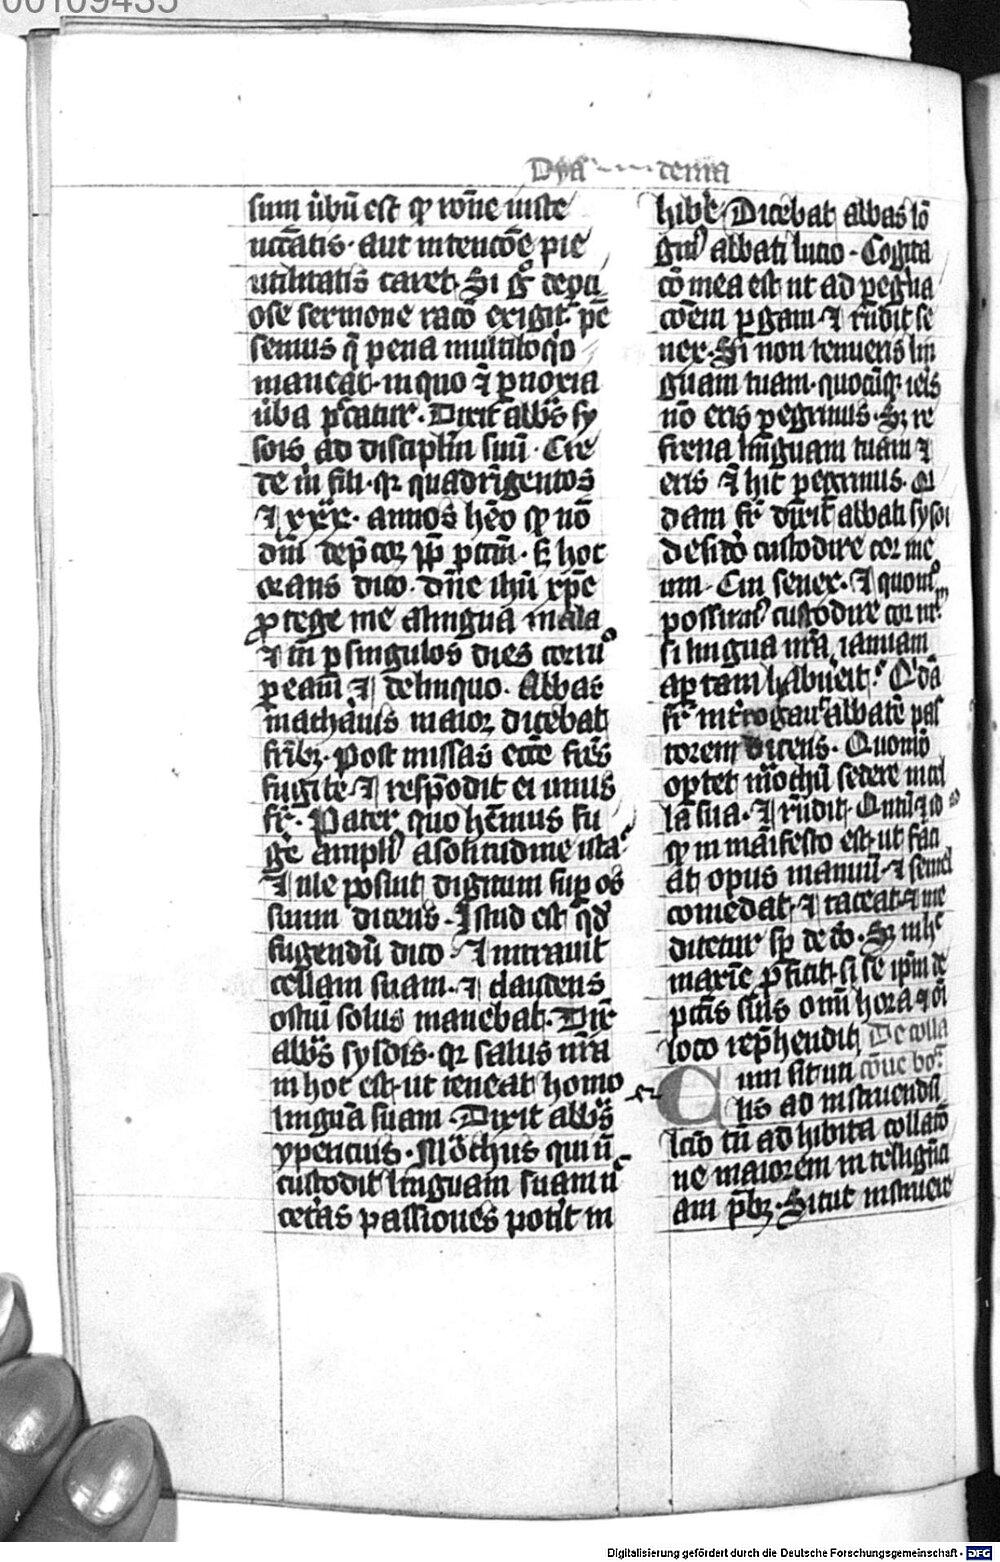 00109435
sum ūbū est ꝙ rōne iuste
uctatis · aut intencōe pie
utilitatis caret · Si gͦ de ocı
ose sermone racō exigit᷑ · pē
semus q̄ pena multiloq̇o
maneat · in quo ⁊ ꝑ noxia
ūba pͨcatur · Dixit abbs̄ sy
sois ad discipłm suū · Cre
de m̄ fili · qꝛ quadringentos
⁊ xxx · annos hēo ꝙ nō
dm̄ dep̄cor ꝓp̄ pctm̄ · s̄ hoc
orans dico · dn̄e ihū xp̄e
ꝓtege me a lingua mala
⁊ tn̄ ꝑ singulos dies corruͦ
ꝑ eam ⁊ delinquo · Abbas
machāius maior dicebat
frībꝫ · Post missas ecc̄e frēs
fugite ⁊ respōdit ei unus
fr̄ · Pater quo hēmus fu
ge͛ ampliꝰ a solitudine ista
⁊ ille posuit digitum suꝑ os
suum dicens · Istud est qd̄
fugendū dico · ⁊ intrauit
cellam suam · ⁊ claudens
ostiū solus manebat · Dix̄
abbs̄ sysois · qꝛ salus nr̄a
in hoc est ut teneat homo
linguā suam · Dixit abbs̄
ypericius · Mōchus qui nō
custodit linguam suam n̄
cet̄as passiones potit in
hibe͛ Dicebat abbas lō
ginꝰ abbati lucio · Cogita
cō mea est ut ad pegͥna
cōem ꝑgam · ⁊ rn̄dit se
nex · Si non tenueris lin
guam tuam · quocūqꝫ ieris
nō eris pegrinus · Sꝫ re
frena linguam tuam ⁊
eris ⁊ hic pegrinus · Qi
dam fr̄ dixit abbati sysoi
desido͛ custodire cor me
um · Cui senex · ⁊ quomͦ
possumꝰ custodire cor nr̄m
si lingua nr̄a ianuam
aptam habueit · Qͥdā
fr̄ int̄rogauͭ abbatē pas
torem dicens · Quomō
optet mōchū sedere in cel
la sua · ⁊ rn̄dit
ꝙ in māifesto est ut faci
at opus manuū · ⁊ semel
comedat · ⁊ taceat · ⁊ me
ditetur sꝑ de dō · Sꝫ in hͦ
maxīe ꝓficit · si se ipm̄ de
pctīs suis omī hora ⁊ oī
loco rephendit De colla
Cum sit un cōne bo
lis ad instruendū
ad hibita collacō
ne maiorem intellign̄ci
am p̄bꝫ · Sicut instruere
Digitalisierung gefördert durch die Deutsche Forschungsgemeinschaft - DFG